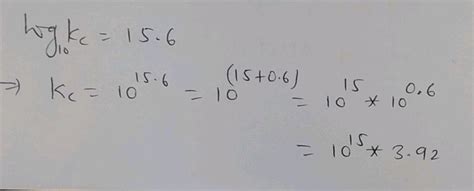 log₁₀ kc = 15.6
⇒ kc = 10^15.6 = 10^(15+0.6) = 10^15 * 10^0.6
= 10^15 * 3.92